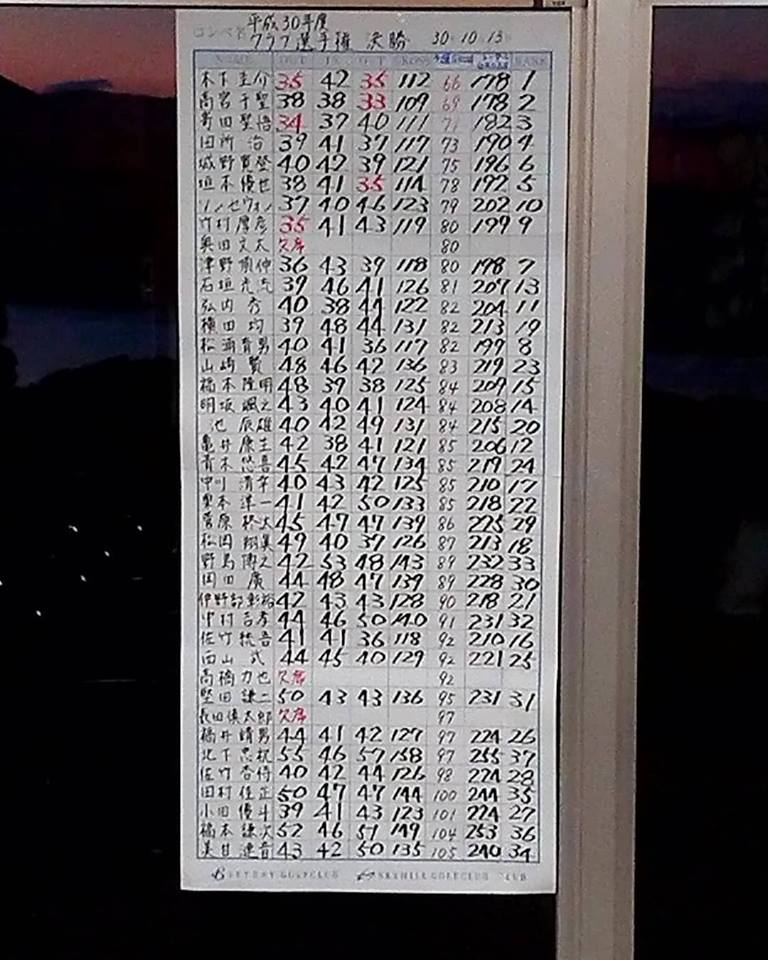 平成30年度
コンペ名 クラブ選手権 決勝 30 10 13
NAME OUT IN OUT GROSS RANK
木下圭介 35 42 35 112 66 178 1
高宮千聖 38 38 33 109 69 178 2
寄田聖悟 34 37 40 111 71 182 3
田所 治 39 41 37 117 73 190 4
城野寛登 40 42 39 121 75 196 6
垣本優也 38 41 35 114 78 192 5
ソン セウォン 37 40 46 123 79 202 10
竹村厚彦 35 41 43 119 80 199 9
奥田文太 欠席 80
津野 伸 36 43 39 118 80 198 7
石垣 39 46 41 126 81 207 13
弘内 秀 40 38 44 122 82 204 11
横田 均 39 48 44 131 82 213 19
松浦育男 40 41 36 117 82 199 8
山崎 賢 48 46 42 136 83 219 23
橋本隆明 48 39 38 125 84 209 15
明坂颯之 43 40 41 124 84 208 14
池 辰雄 40 42 49 131 84 215 20
亀井康生 42 38 41 121 85 206 12
青木悠喜 45 42 47 134 85 219 24
中川清幸 40 43 42 125 85 210 17
栗本準一 41 42 50 133 85 218 22
菅原 太 45 47 47 139 86 225 29
松岡翔美 49 40 37 126 87 213 18
野島博之 42 53 48 143 89 232 33
岡田 廣 44 48 47 139 89 228 30
伊野部彰裕 42 43 43 128 90 218 21
中村吉孝 44 46 50 140 91 231 32
佐竹 吾 41 41 36 118 92 210 16
西山 武 44 45 40 129 92 221 25
高橋力也 欠席 92
堅田謙二 50 43 43 136 95 231 31
長田慎太郎 欠席 97
橋井靖男 44 41 42 127 97 224 26
北下忠 55 46 57 158 97 255 37
佐竹杏侍 40 42 44 126 98 224 28
田村佳正 50 47 47 144 100 244 35
小田優斗 39 41 43 123 101 224 27
橋本謙次 52 46 51 149 104 253 36
美甘連音 43 42 50 135 105 240 34
SKYBAY GOLFCLUB SKYHILL GOLFCLUB